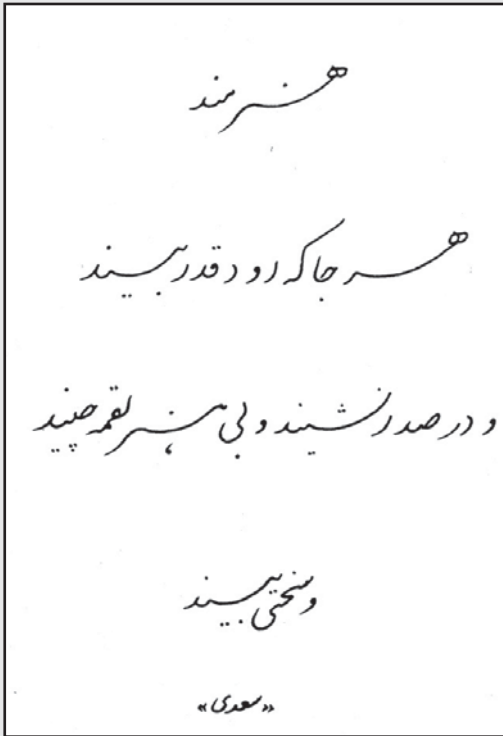 هنرمند
هر جا که رود قدر بیند
و در صدر نشیند و بی هنر لقمه چیند
و سختی بیند
«سعدی»